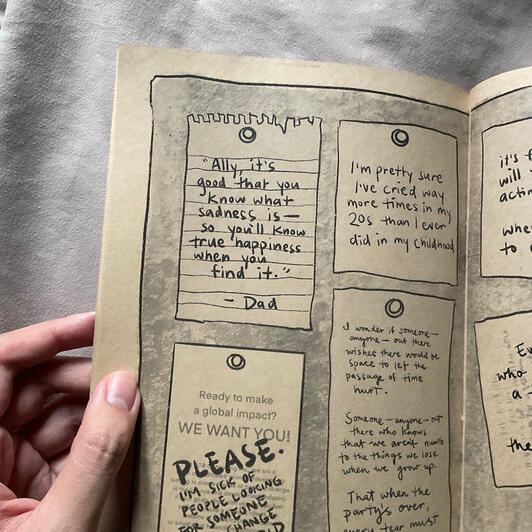 "Ally, it's
good that you
know what
sadness is—
so you'll know
true happiness
when you
find it."
- Dad
I'm pretty sure
I've cried way
more times in my
20s than I ever
did in my childhood
Ready to make
a global impact?
WE WANT YOU!
PLEASE.
I'M SICK OF
PEOPLE LOOKING
FOR SOMEONE
CHANGE
I wonder if someone—
anyone— out there
wishes there would be
space to let the
passage of time
hurt.
Someone—anyone—out
there who knows
that we aren't numb
to the things we lose
when we grow up.
That when the
party's over,
every tear must
it's
will
to
who
a -
the